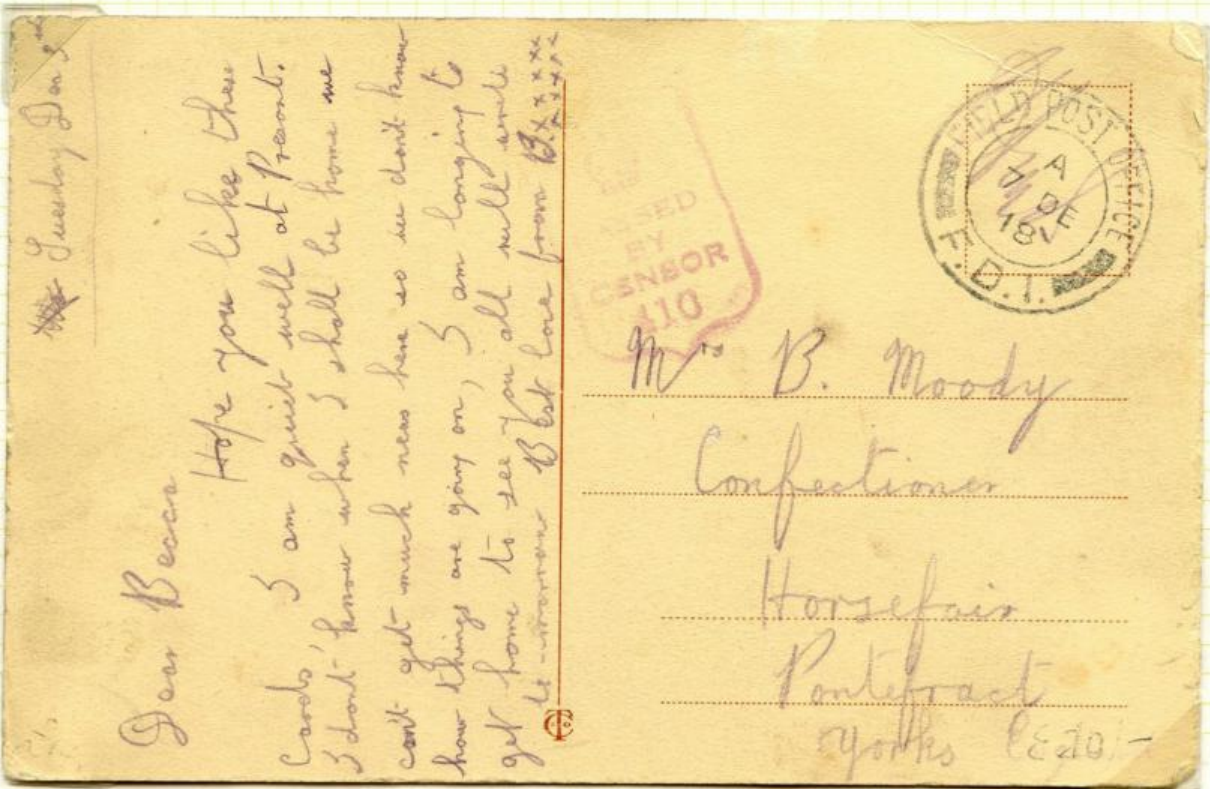 Tuesday Dec 3rd
Dear Becca
Hope you like these
cards, I am quiet well at Present.
I dont know when I shall be home we
cant get much news here so we dont know
how things are going on, I am longing to
get home to see you all will write
to-morrow Best love from B. x x x x x
x x x x
PASSED
BY
CENSOR
410
FIELD POST OFFICE
A
7 DE
18
T.D.1.
Mrs B. Moody
Confectioner
Horsefair
Pontefract
Yorks